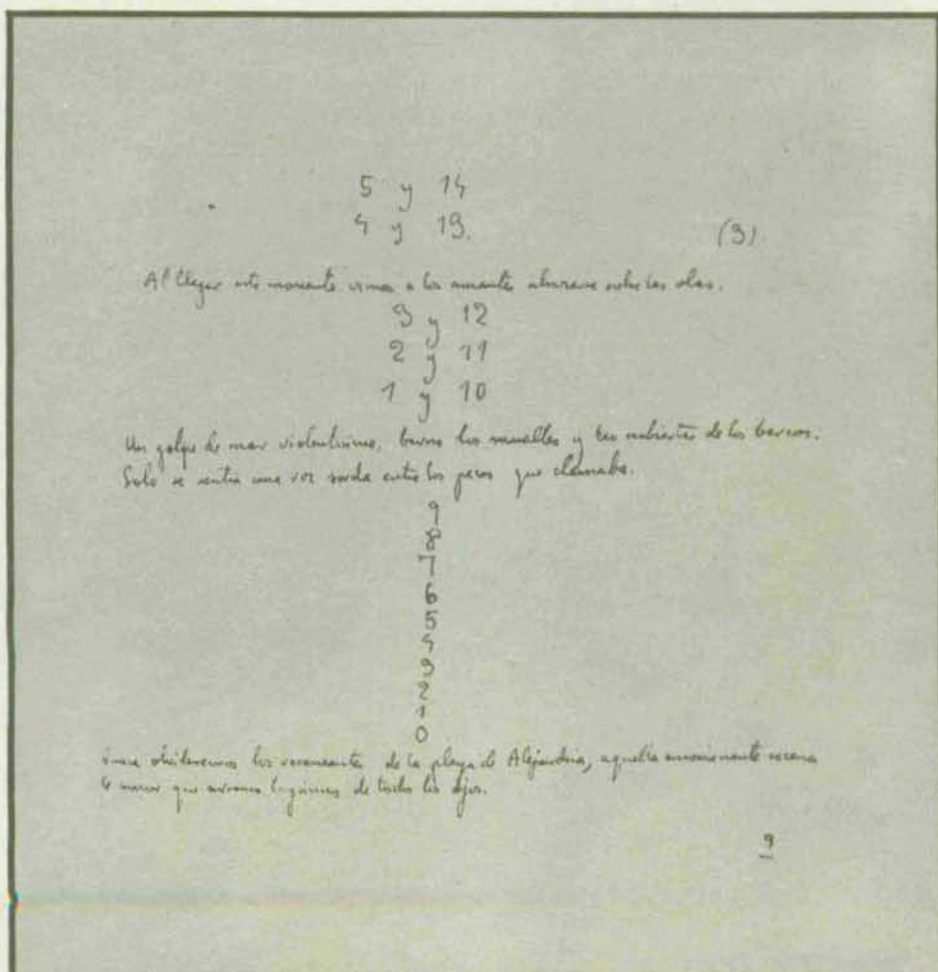 5 y 14
4 y 13.
(3)
Al llegar este momento vimos a los amantes abrazarse sobre las olas.
3 y 12
2 y 11
1 y 10
Un golpe de mar violentisimo, barrio los muelles y las cubiertas de los barcos.
Solo se sentia una voz sorda entre los peces que clamaba.
9
8
7
6
5
4
3
2
1
0
olvidaremos los veraneantes de la playa de Alejandria, aquella emocionante escena
de amor que arranco lagrimas de todos los ojos.